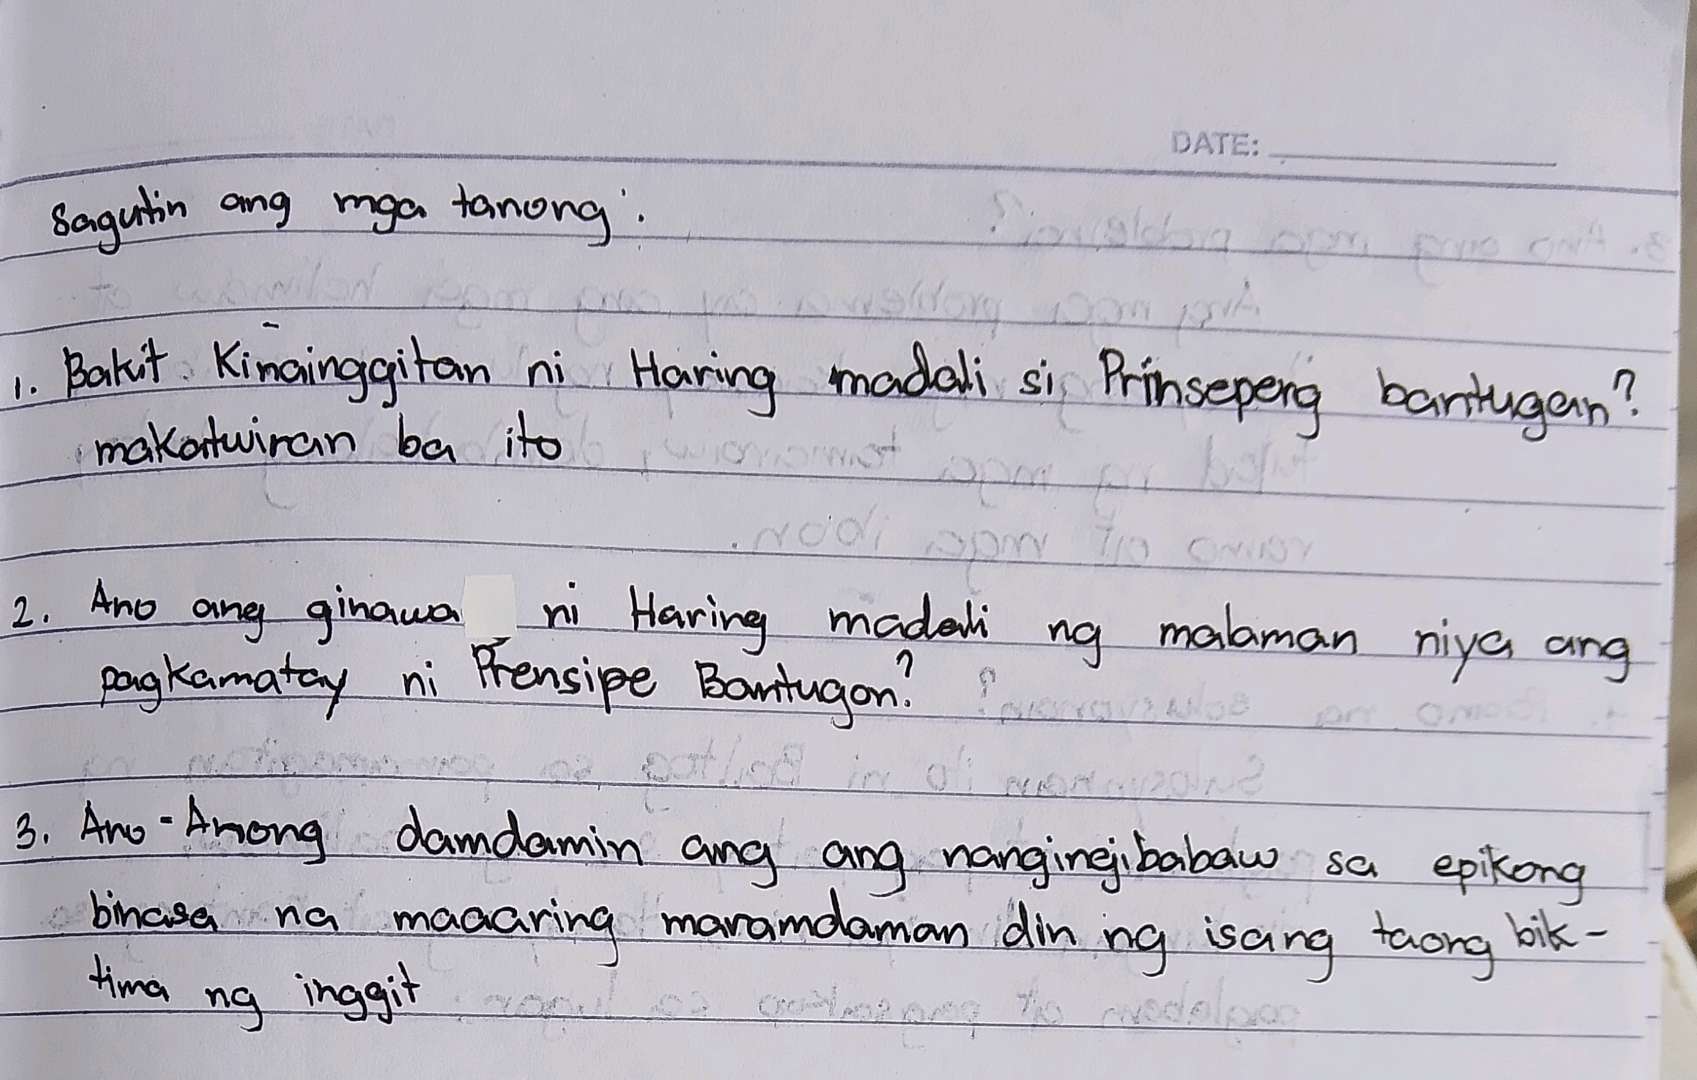 DATE:
Sagutin ang mga tanong:
1. Bakit Kinainggitan ni Haring madali si Prinsepeng bantugan?
makatwiran ba ito
2. Ano ang ginawa ni Haring madali ng malaman niya ang
pagkamatay ni Prensipe Bantugan?
3. Ano-Anong damdamin ang ang nangingibabaw sa epikong
binasa na maaaring maramdaman din ng isang taong bik-
tima ng inggit